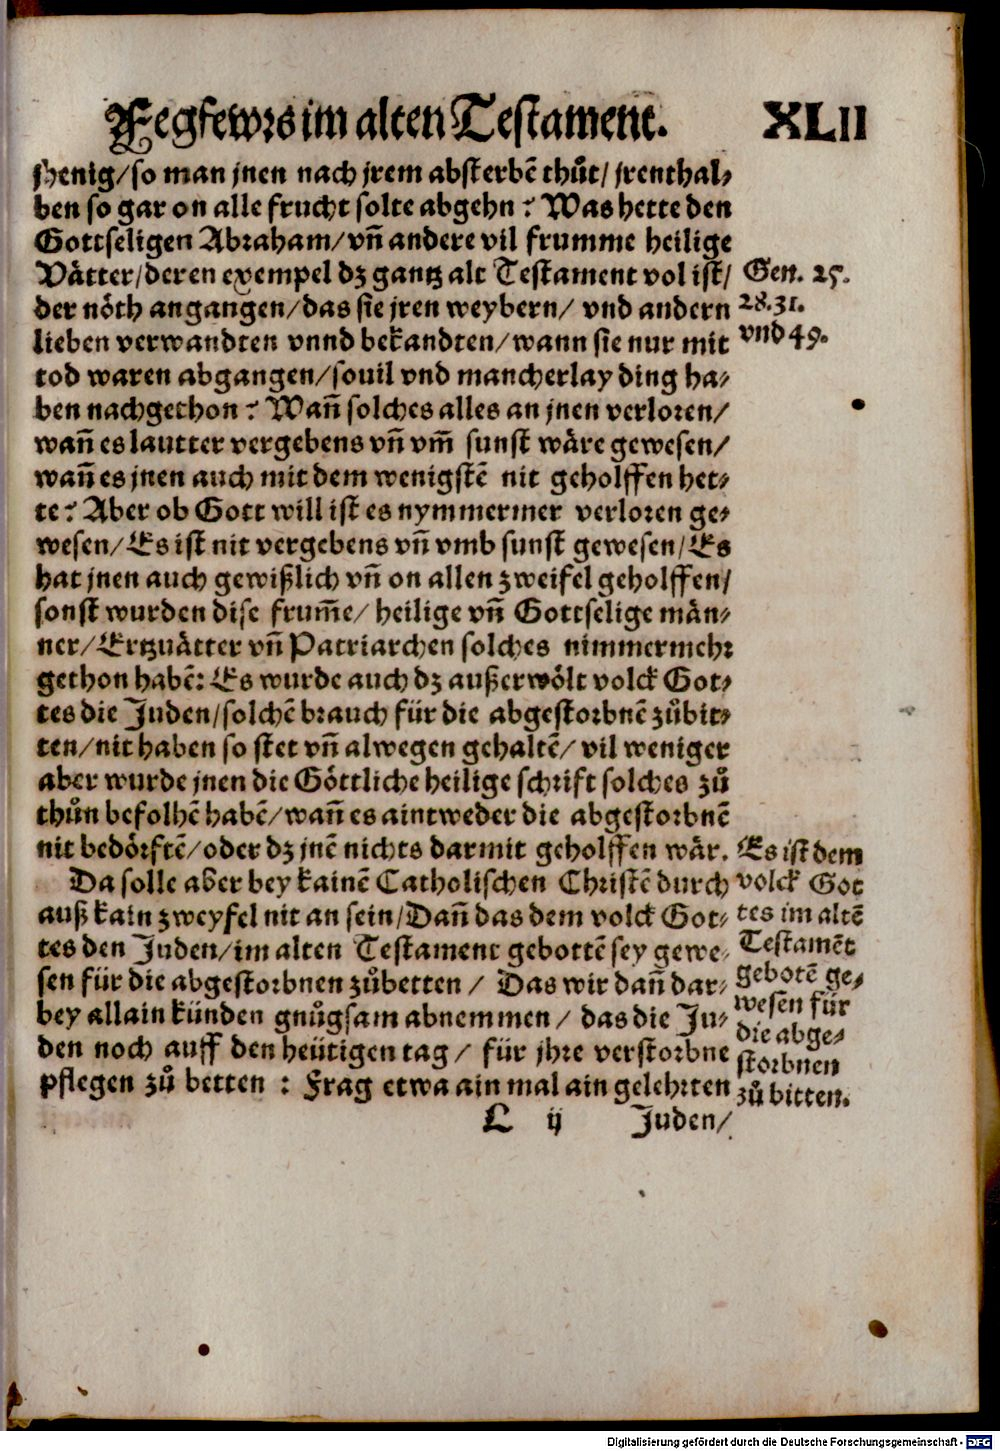 Fegfewrs im alten Testament. XLII
jhenig/so man jnen nach jrem absterbẽ thůt/ jrenthal-
ben so gar on alle frucht solte abgehn? Was hette den
Gottseligen Abraham/vñ andere vil frumme heilige
Vätter/deren exempel dz gantz alt Testament vol ist/
Gen. 25.
der nöth angangen/das sie jren weybern/ vnd andern
28.31.
lieben verwandten vnnd bekandten/wann sie nur mit
vnd 49.
tod waren abgangen/souil vnd mancherlay ding ha-
ben nachgethon? Wañ solches alles an jnen verloren/
wañ es lautter vergebens vñ vm̃ sunst wäre gewesen/
wañ es jnen auch mit dem wenigstẽ nit geholffen het-
te? Aber ob Gott will ist es nymmermer verloren ge-
wesen/Es ist nit vergebens vñ vmb sunst gewesen/Es
hat jnen auch gewißlich vñ on allen zweifel geholffen/
sonst wurden dise frum̃e/ heilige vñ Gottselige män-
ner/Ertzuätter vñ Patriarchen solches nimmermehr
gethon habẽ: Es wurde auch dz außerwölt volck Got-
tes die Juden/solchẽ brauch für die abgestorbnẽ zůbit-
ten/nit haben so stet vñ alwegen gehaltẽ/ vil weniger
aber wurde jnen die Göttliche heilige schrift solches zů
thůn befolhẽ habẽ/wañ es aintweder die abgestorbnẽ
nit bedörftẽ/oder dz jnẽ nichts darmit geholffen wär.
Da solle aber bey kainẽ Catholischen Christẽ durch
auß kain zweyfel nit an sein/Dañ das dem volck Got-
tes den Juden/im alten Testament gebottẽ sey gewe-
sen für die abgestorbnen zůbetten/ Das wir dañ dar-
bey allain künden gnůgsam abnemmen/ das die Ju-
den noch auff den heütigen tag/ für jhre verstorbne
pflegen zů betten: Frag etwa ain mal ain gelehrten
Es ist dem
volck Got
tes im altẽ
Testamẽt
gebotẽ ge-
wesen für
die abge-
storbnen
zů bitten.
L ij Juden/
Digitalisierung gefördert durch die Deutsche Forschungsgemeinschaft - DFG